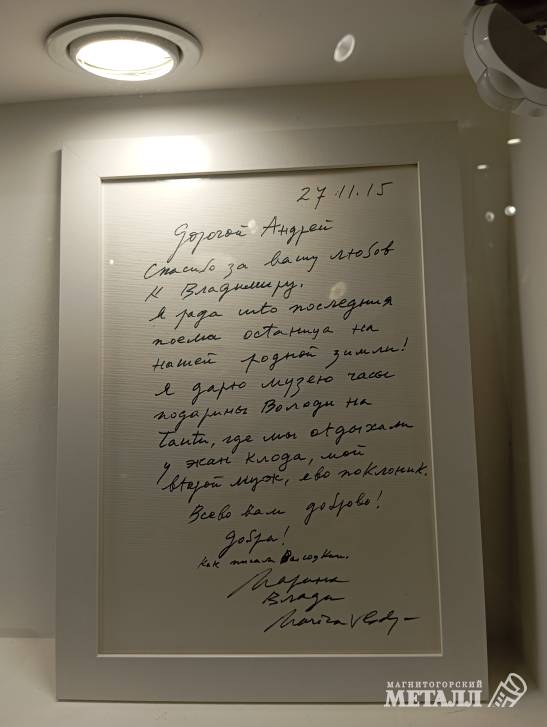 27.11.15
Дорогой Андрей
Спасибо за вашу любов
к Владимиру.
Я рада што последния
поема останица на
нашей родной зимли!
Я дарю музею часы
подарины Володи на
таити, где мы отдыхали
у жан клода, мой
второй муж, ево поклоник.
Всево вам доброво!
Добра!
как писал Володя.
Марина
Влади
Marina Vlady
МАГНИТОГОРСКИЙ
МЕТАЛЛ